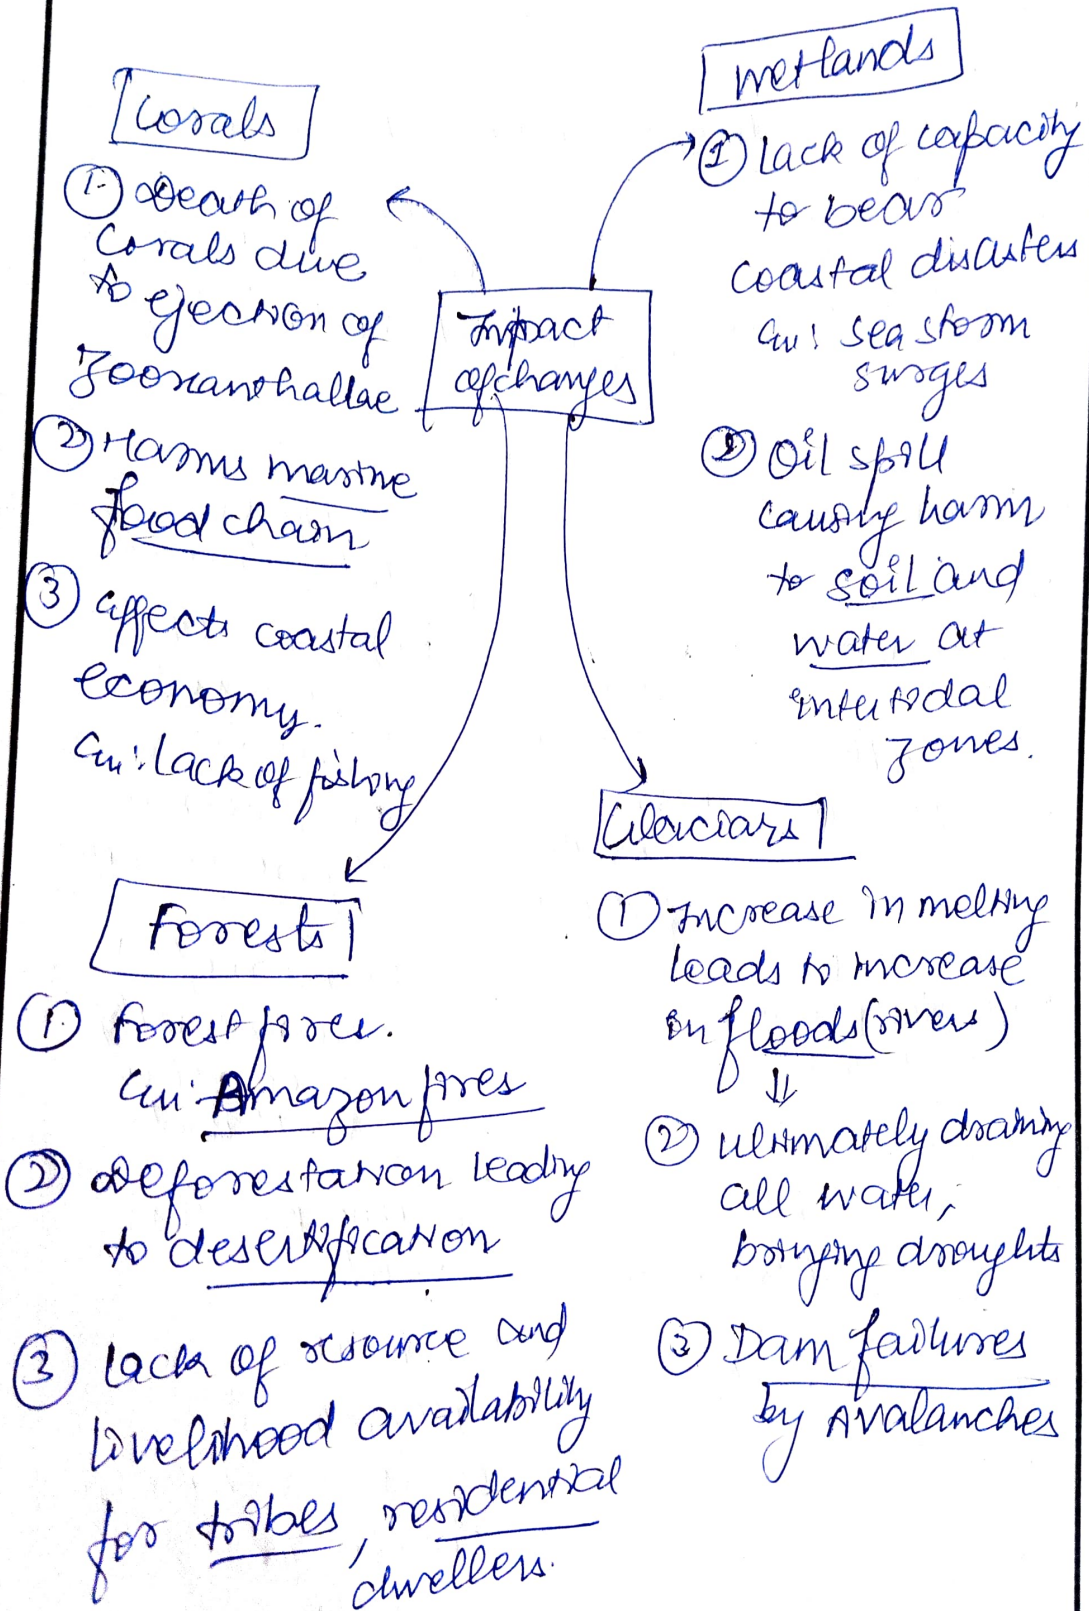 Corals
① Death of
Corals due
to ejection of
Zooxanthallae
② Harms marine
food chain
③ affects coastal
economy.
Eg: Lack of fishing
Wetlands
① Lack of capacity
to bear
coastal disasters
Eg: sea storm
surges
② Oil spill
causing harm
to soil and
water at
intertidal
zones.
Impact
of changes
Forests
① Forest fires.
Eg: Amazon fires
② Deforestation leading
to desertification
③ Lack of resource and
livelihood availability
for tribes, residential
dwellers.
Glaciars
① Increase in melting
leads to increase
in floods (rivers)
⇓
② Ultimately draining
all water,
bringing droughts
③ Dam failures
by Avalanches